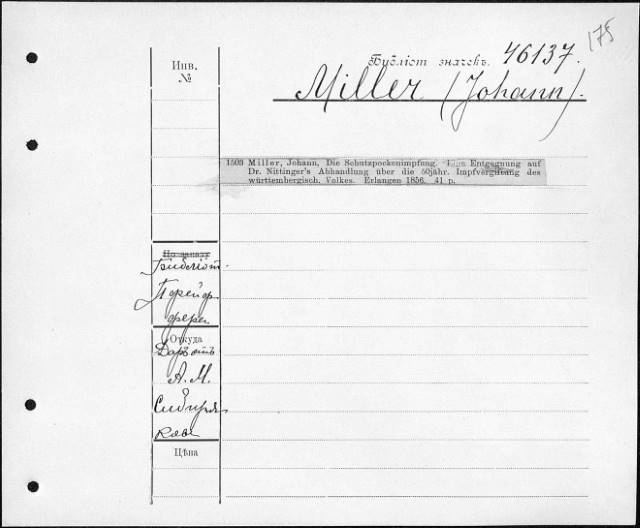 175
Бубліот значекъ. 46137.
Инв.
№
Miller (Johann).
1509 Miller, Johann, Die Schutzpockenimpfung. Entgegnung auf
Dr. Nittinger's Abhandlung über die 50jähr. Impfvergiftung des
württembergisch. Volkes. Erlangen 1856. 41 p.
По заказу
Откуда
Даръ отъ
А. М.
Цѣна